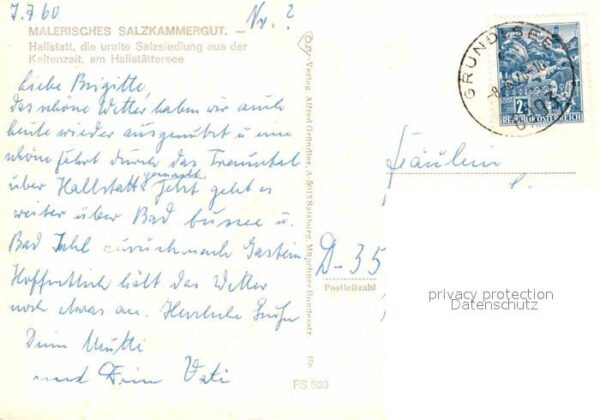 7.7.60
Nr. ?
MALERISCHES SALZKAMMERGUT. —
Hallstatt, die uralte Salzsiedlung aus der
Keltenzeit, am Hallstättersee
Liebe Brigitte,
das schöne Wetter haben wir auch
heute wieder ausgenützt u. eine
schöne Fahrt durch das Trauntal
über Hallstatt gemacht. Jetzt geht es
weiter über Bad Aussee u.
Bad Ischl zurück nach Gastein.
Hoffentlich hält das Wetter
noch etwas an. Herzliche Grüße
Deine Mutti
und Dein Vati
Verlag, Alfred Gründler, A-5013 Salzburg, Münchner Bundesstr.
FS 503
GRUNDLSEE
2
REPUBLIK ÖSTERREICH
Fräulein
D-35
Postleitzahl
privacy protection
Datenschutz